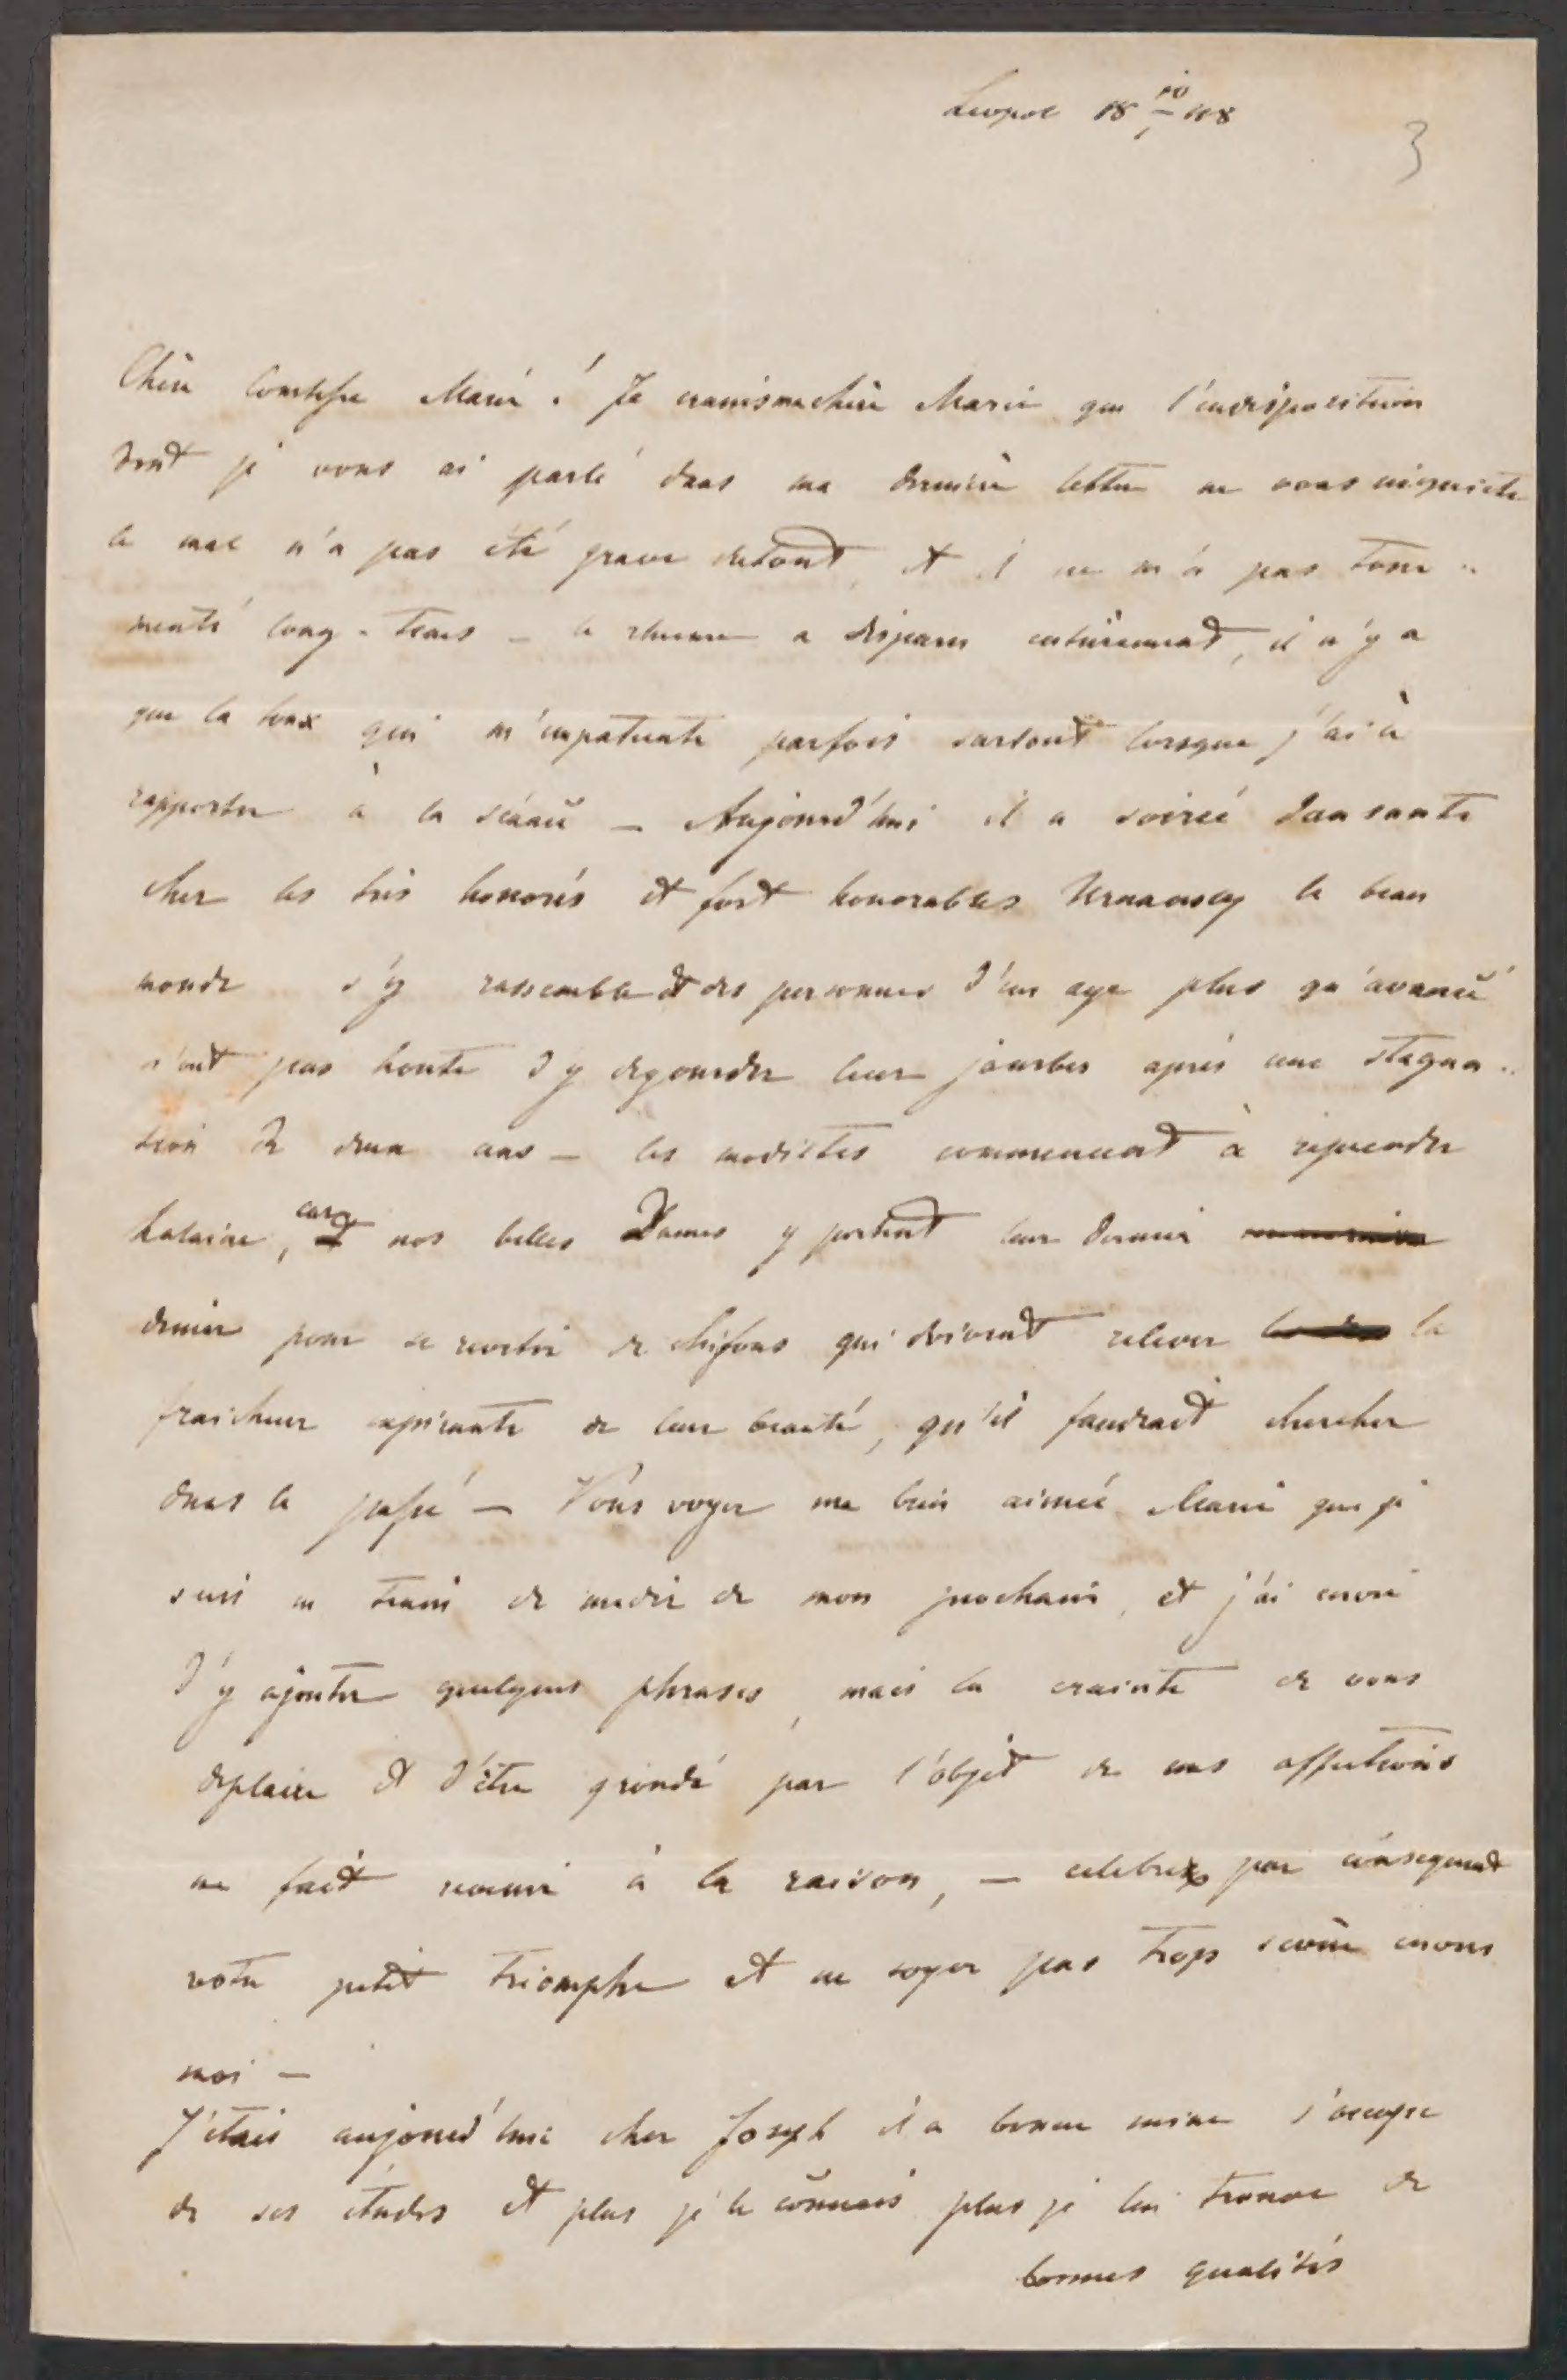 Leopol 18 10/1 48
3
Chère Comtesse Marie! Je crains ma chère Marie que l'indisposition
dont je vous ai parlé dans ma dernière lettre ne vous inquiete
le mal n'a pas été grave du tout, et il ne m'a pas tour„
menté long-tems – le rhume a disparu entièrement, il n'y a
que la toux qui m'impatiente parfois surtout lorsque j'ai à
rapporter à la séance – Aujourd'hui il a soirée dansante
chez les très honorés et fort honorables le beau
monde s'y rassemble et des personnes d'un age plus qu'avancé
n'ont pas honte d'y degourdir leur jambes après une stagna„
tion de deux ans – les modistes commencent à reprendre
halaine, car nos belles Dames y portent leur dernier
denier pour se revetir de chifons qui doivent relever la
fraicheur expirante de leur beauté, qu'il faudrait chercher
dans le passé – Vous voyez ma bien aimée Marie que je
suis en train de medir de mon prochain, et j'ai envie
d'y ajouter quelques phrases, mais la crainte de vous
deplaire et d'être grondé par l'objet de mes affections
me fait revenir à la raison, – celebrez par consequent
votre petit triomphe et ne soyez pas trop sevère envers
moi –
J'étais aujourd'hui chez Joseph il a bonne mine s'occupe
de ses études et plus je le connais plus je lui trouve de
bonnes qualités